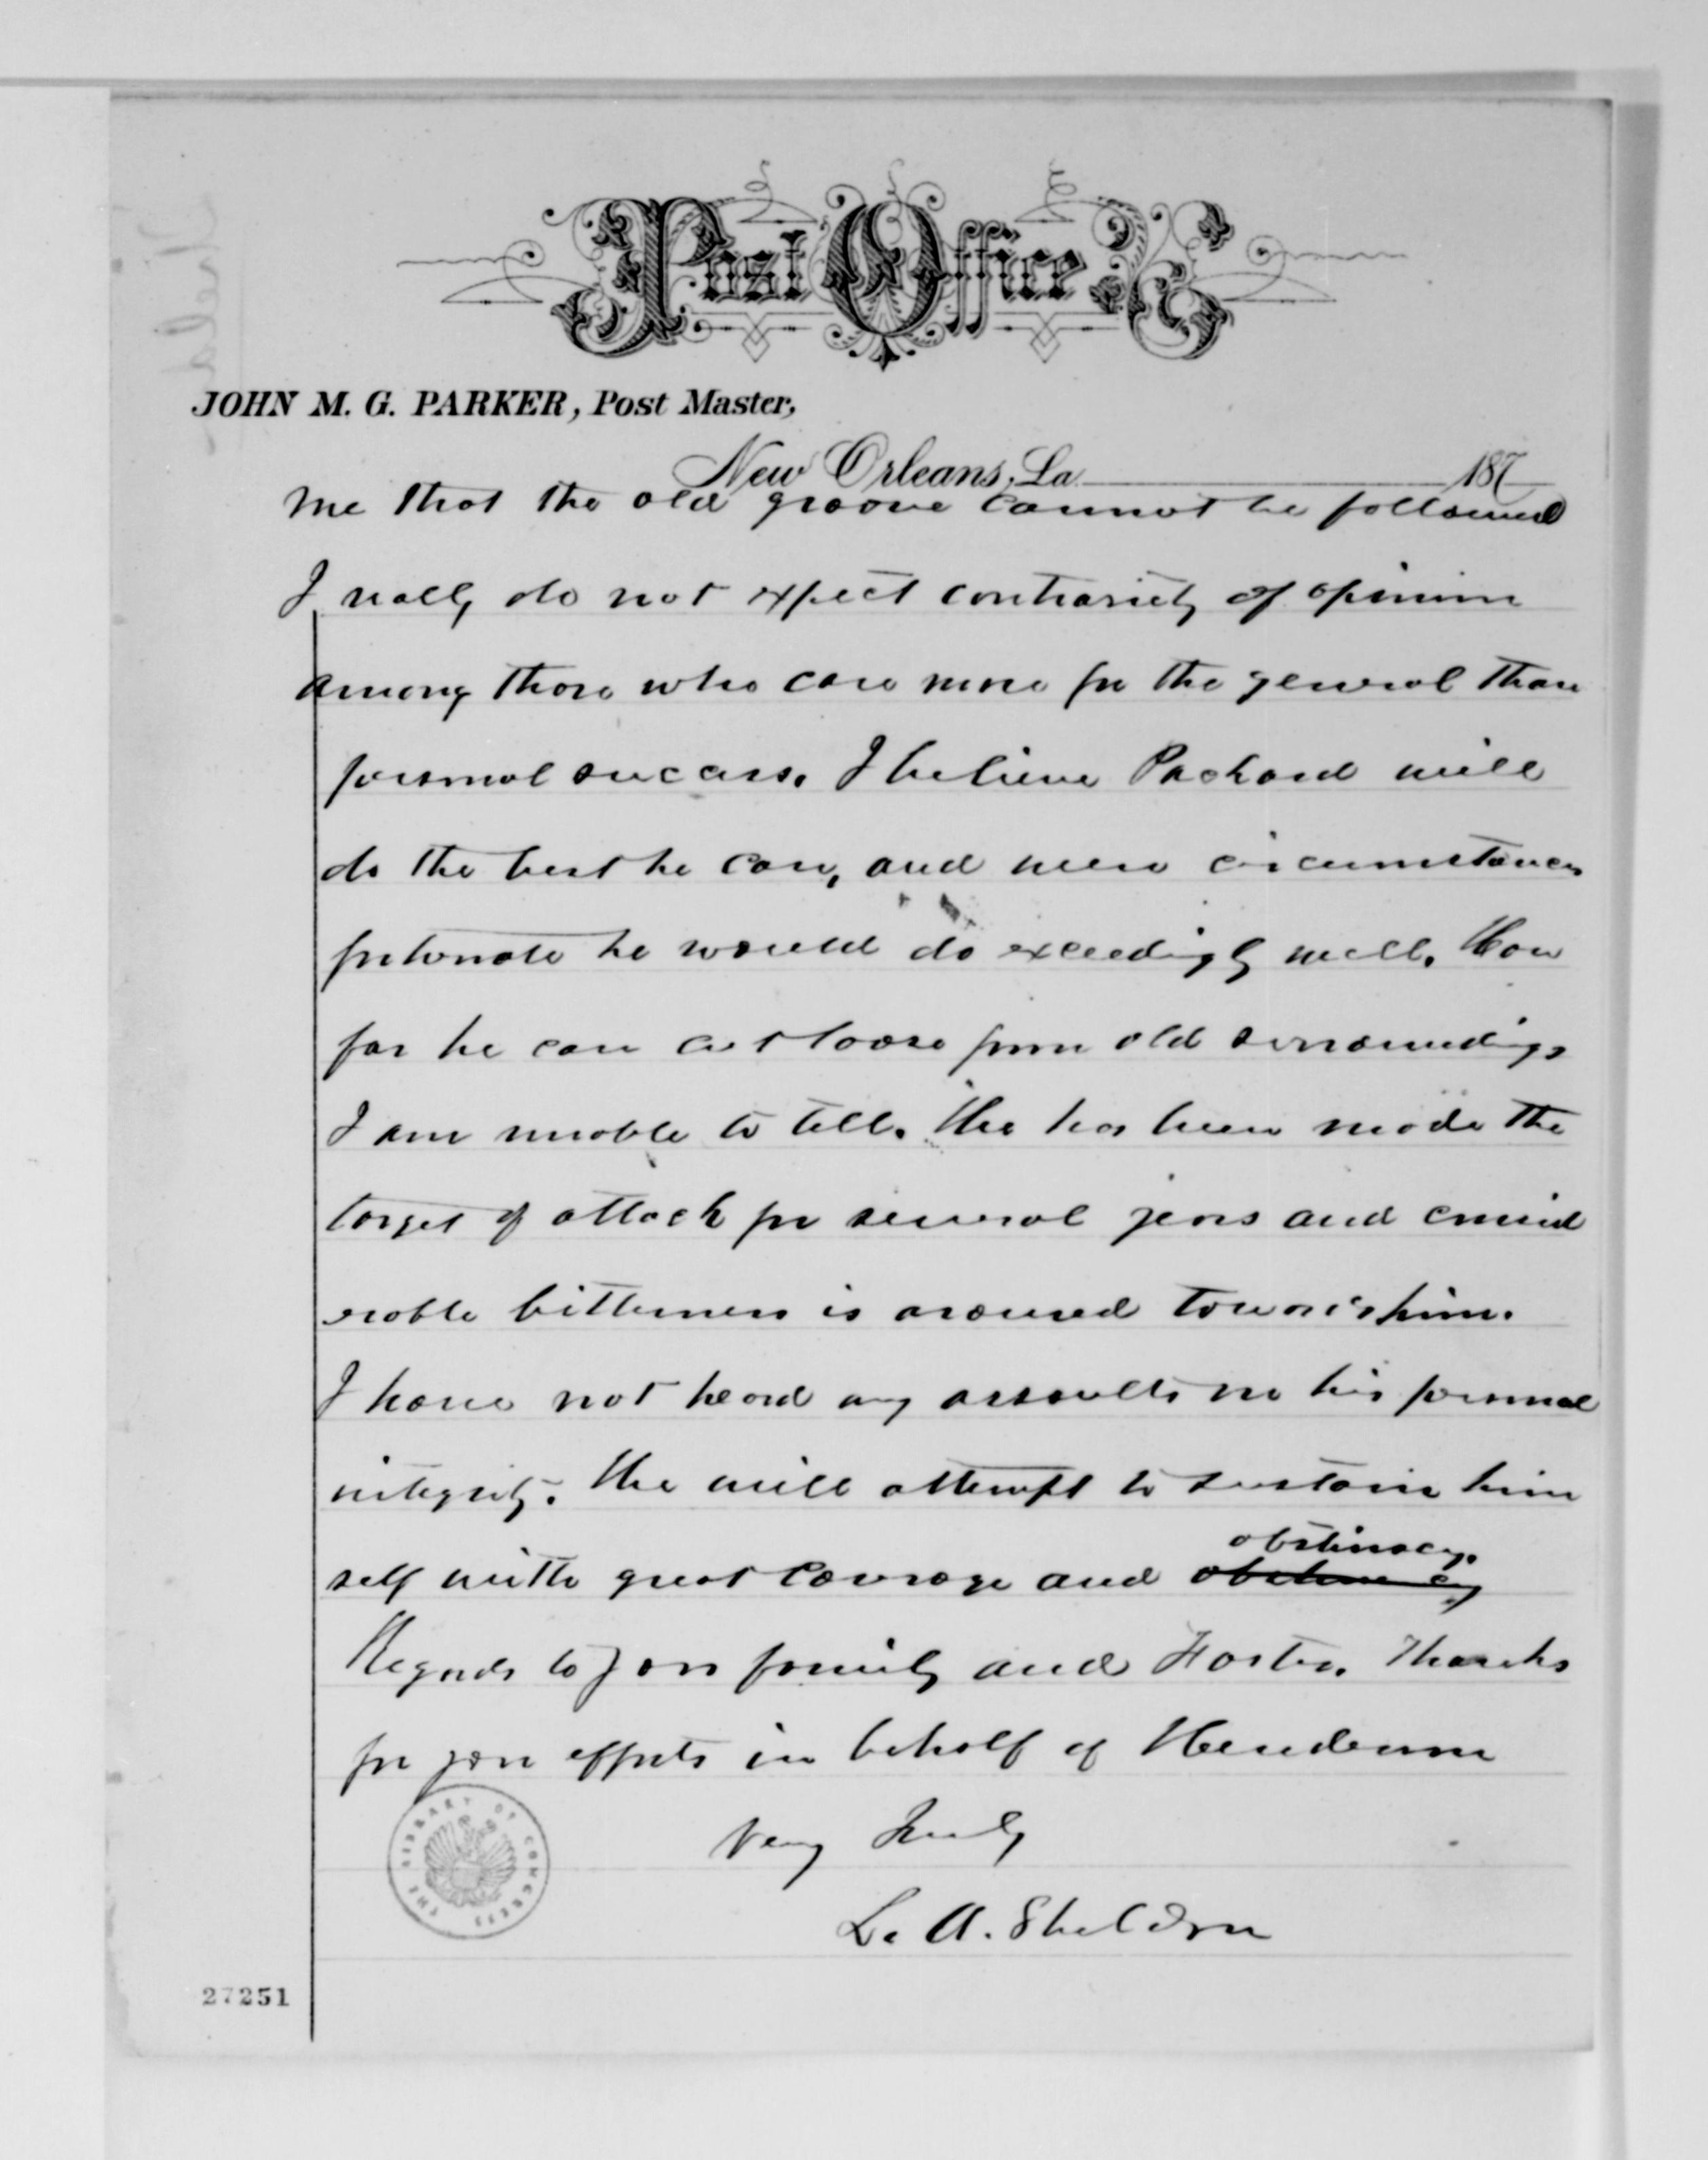 Post Office
JOHN M. G. PARKER, Post Master,
New Orleans, La 187
me that the old groove cannot be followed
I really do not expect contrariety of opinion
among those who care more for the general than
personal success. I believe Packard will
do the best he can, and were circumstances
fortunate he would do exceedingly well. How
far he can cut loose from old surroundings
I am unable to tell. He has been made the
target of attack for several years and consid
erable bitterness is aroused towards him.
I have not heard any assaults on his personal
integrity. He will attempt to sustain him
obstinacy.
self with great courage and
Regards to your family and Foster. Thanks
for your efforts in behalf of Henderson
Very Truly
L. A. Sheldon
THE LIBRARY OF CONGRESS
27251